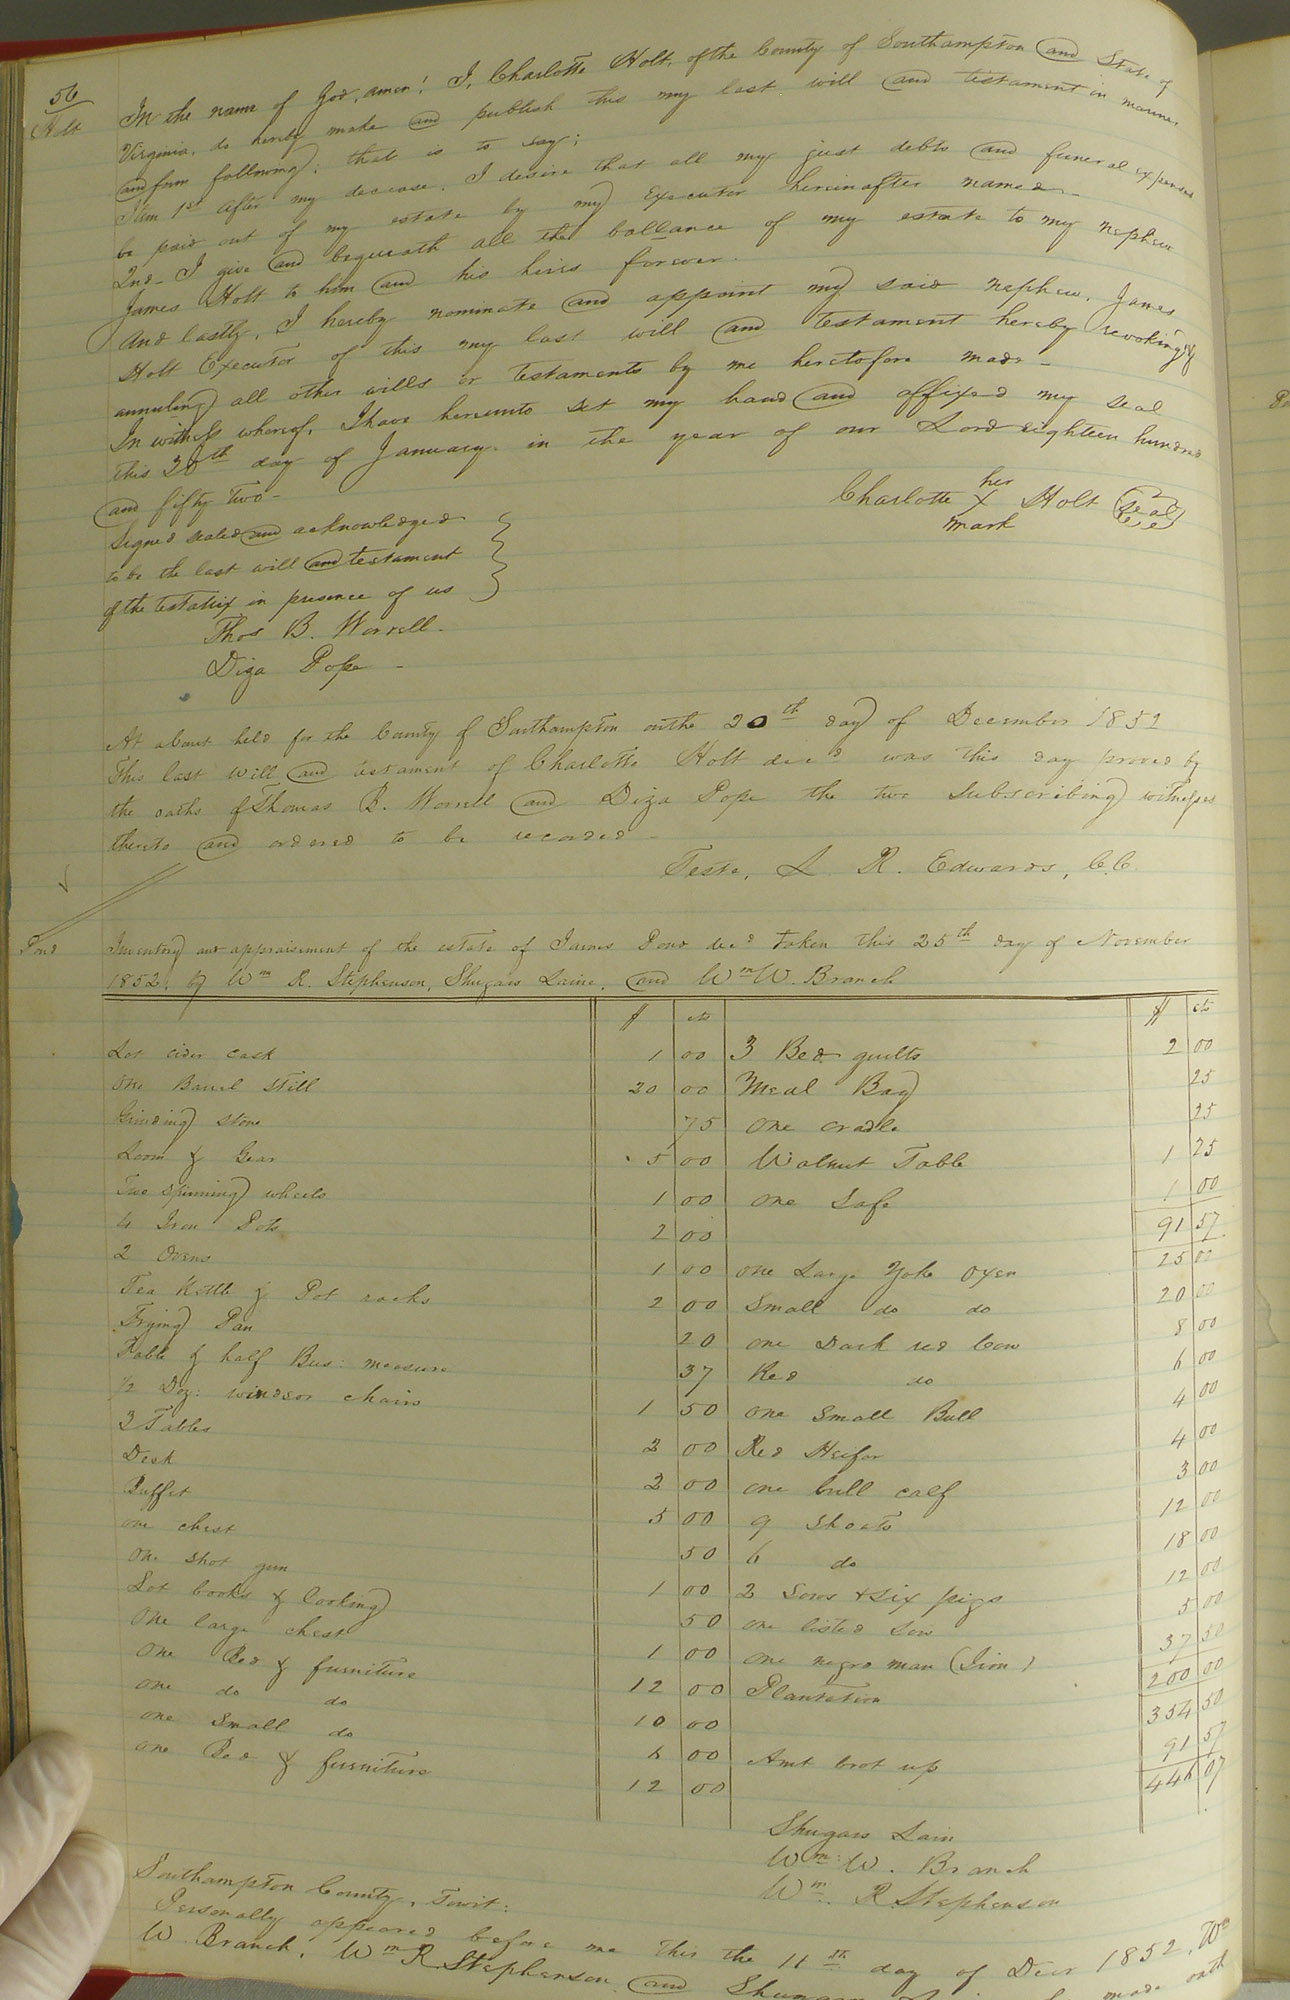 56
Holt
In the name of God, amen! I, Charlotte Holt, of the County of Southampton and State of
Virginia, do hereby make and publish this my last will and testament in manner
and form following; that is to say;
Item 1st After my decease, I desire that all my just debts and funeral expenses
be paid out of my estate by my Executor hereinafter named.
2nd I give and bequeath all the ballance of my estate to my nephew
James Holt to him and his heirs forever.
And lastly, I hereby nominate and appoint my said nephew, James
Holt Executor of this my last will and testament hereby revoking &
annuling all other wills or testaments by me heretofore made
In witness whereof, I have hereunto set my hand and affixed my seal
this 30th day of January in the year of our Lord eighteen hundred
and fifty two
Charlotte her X mark Holt (Seal)
Signed sealed and acknowledged
to be the last will and testament
of the testatrix in presence of us
Thos B. Worrell.
Diza Pope
At a Court held for the County of Southampton on the 20th day of December 1852
This last will and testament of Charlotte Holt decd was this day proved by
the oaths of Thomas B. Worrell and Diza Pope the two Subscribing witnesses
thereto and ordered to be recorded
Teste, L. R. Edwards, C.C.
Pond
Inventory and appraisement of the estate of James Pond decd taken this 25th day of November
1852. by Wm R. Stephenson, Shugars Laine, and Wm W. Branch
$ cts $ cts
Lot cider cask 1 00 3 Bed quilts 2 00
one Barrel Still 20 00 Meal Bag 25
Grinding stone 75 one cradle 25
Loom & Gear 5 00 Walnut Table 1 25
Two spinning wheels 1 00 one Safe 1 00
4 Iron Pots 2 00 91 57
2 Ovens 1 00 one Large Yoke Oxen 25 00
Tea Kettle & Pot racks 2 00 Small do do 20 00
Frying Pan 20 one Dark red Cow 8 00
Table & half Bus: measure 37 Red do 6 00
1/2 Doz: windsor chairs 1 50 one Small Bull 4 00
3 Tables 3 00 Red Heifer 4 00
Desk 2 00 one bull calf 3 00
Buffet 5 00 9 Shoats 12 00
one chest 50 6 do 18 00
One shot gun 1 00 2 Sows & Six pigs 12 00
Lot books & Cooling 50 one listed Sow 5 00
One large chest 1 00 one negro man (Jim) 37 50
One Bed & furniture 12 00 Plantation 200 00
one do do 10 00 354 50
one Small do 6 00 Amt brot up 91 57
one Bed & furniture 12 00 446 07
Shugars Lain
Wm W. Branch
Wm. R. Stephenson
Southampton County, Towit:
Personally appeared before me this the 11th day of Decr 1852, Wm
W. Branch, Wm R. Stephenson and made oath